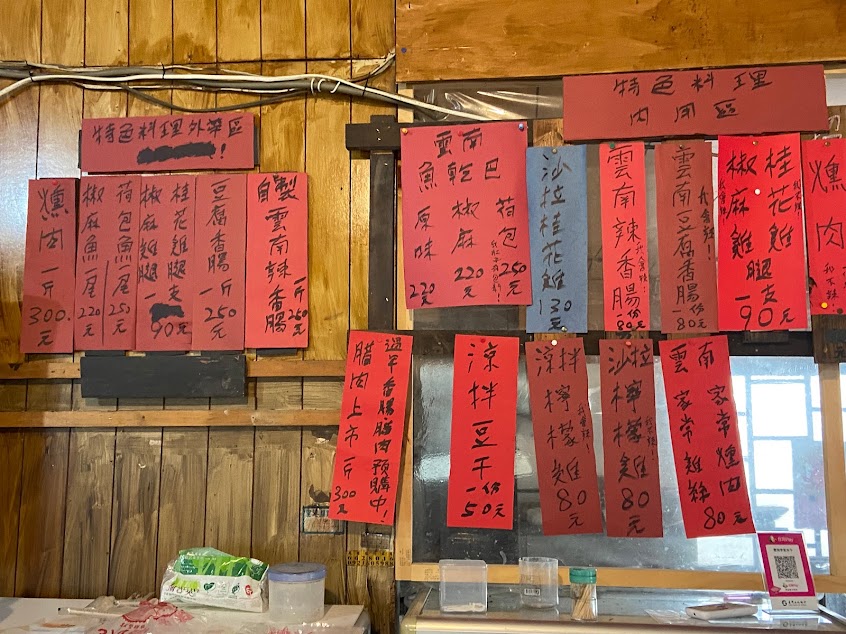 特色料理外帶區
!
燻肉一斤300元
椒麻魚一尾220元
荷包魚一尾250元
椒麻雞腿
桂花雞腿一支90元
豆腐香腸一斤250元
自製雲南辣香腸一斤260元
過年香腸臘肉預購中!
臘肉上市一斤300元
特色料理
內用區
雲南
魚乾巴
原味220元
椒麻220元
荷包250元
沙拉桂花雞130元
雲南辣香腸一份80元
雲南豆腐香腸一份80元
椒麻雞腿
桂花雞腿一支90元
燻肉
涼拌豆干一份50元
涼拌檸檬雞80元
沙拉檸檬雞80元
雲南家常雞絲
家常燻肉80元